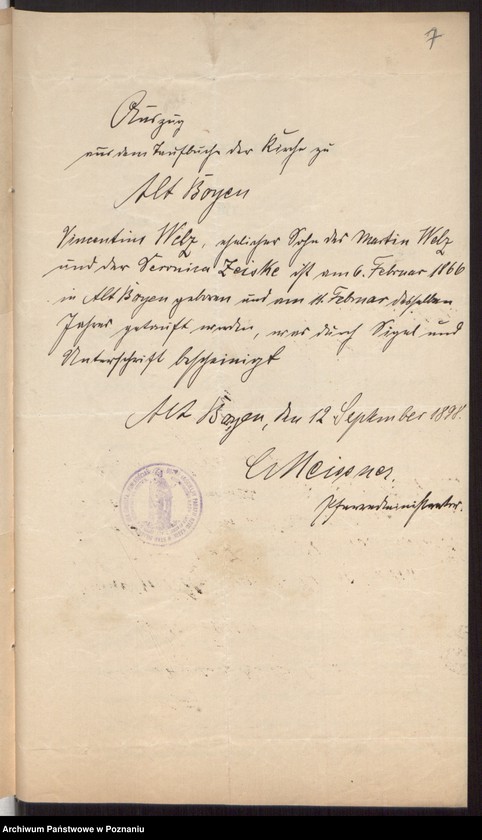 7
Auszug
aus dem Taufbuche der Kirche zu
Alt Boyen
Vincentius Welz, ehelicher Sohn des Martin Welz
und der Veronica Zeiske ist am 6. Februar 1866
in Alt Boyen geboren und am 11. Februar desselben
Jahres getauft worden, was durch Sigel und
Unterschrift bescheinigt
Alt Boyen, den 12 September 1898.
Meissner.
Pfarradministrator.
Archiwum Państwowe w Poznaniu